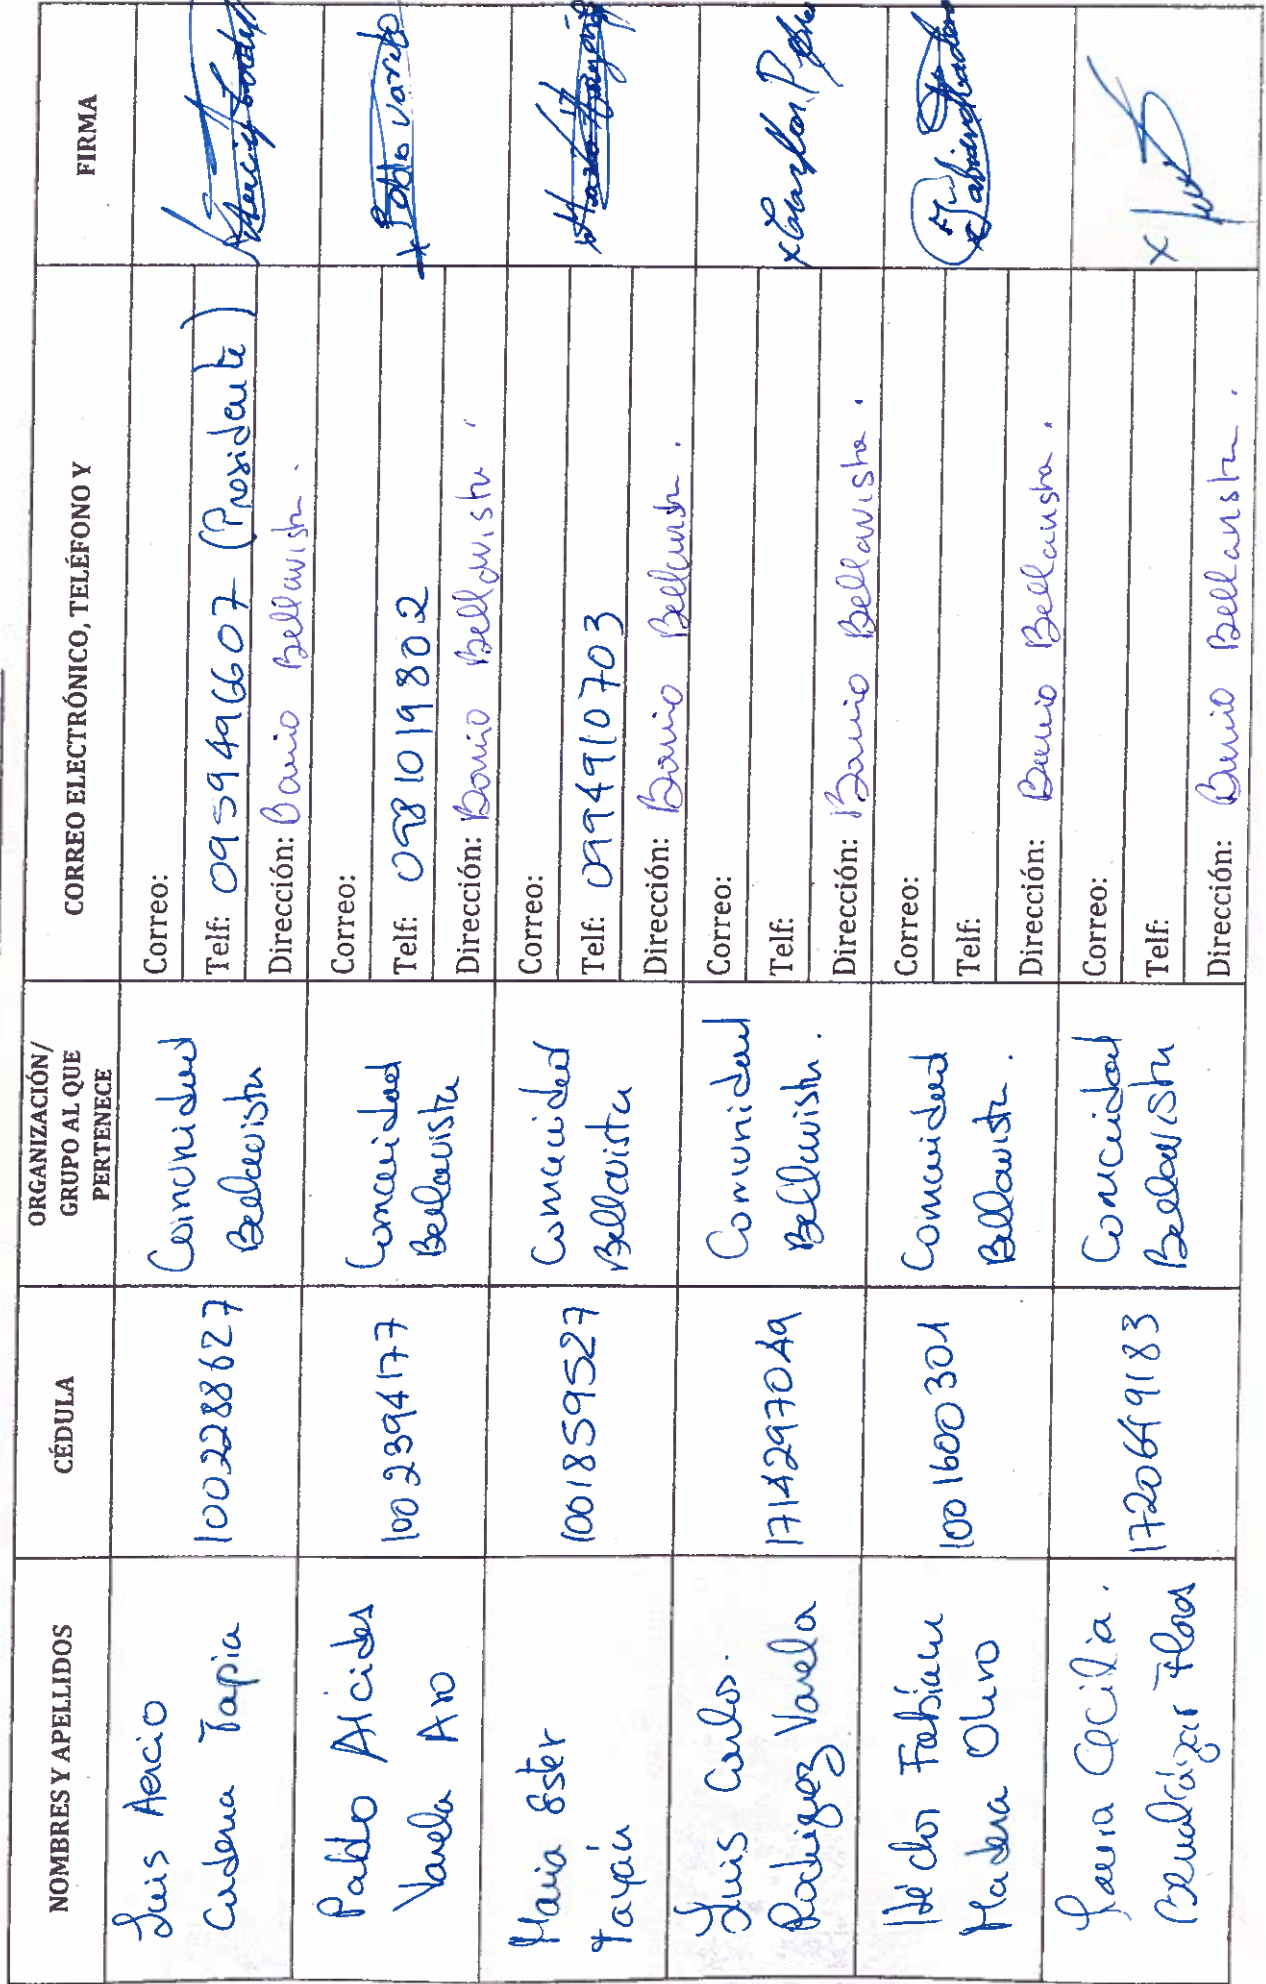 NOMBRES Y APELLIDOS
CÉDULA
ORGANIZACIÓN/
GRUPO AL QUE
PERTENECE
CORREO ELECTRÓNICO, TELÉFONO Y
FIRMA
Luis Aercio
Cadena Tapia
1002288627
Comunidad
Bellavista
Correo:
Telf: 0959496607 (Presidente)
Dirección: Barrio Bellavista.
Pablo Alcides
Varela
1002394177
Comunidad
Bellavista
Correo:
Telf: 0981019802
Dirección: Barrio Bellavista.
Pablo Varela
Maria Ester
Tayán
1001859527
Comunidad
Bellavista
Correo:
Telf: 0994910703
Dirección: Barrio Bellavista.
Luis Carlos.
Rodriguez Varela
1714297049
Comunidad
Bellavista.
Correo:
Telf:
Dirección: Barrio Bellavista.
Héctor Fabián
Madera
1001600301
Comunidad
Bellavista.
Correo:
Telf:
Dirección: Barrio Bellavista.
Cecilia.
Flores
Comunidad
Bellavista
Correo:
Telf:
Dirección: Barrio Bellavista.
X